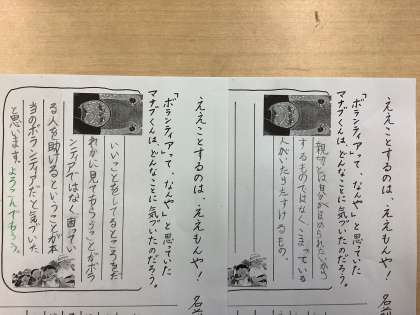 ええことするのは、ええもんや！ 名前
「ボランティアって、なんや」と思っていた
マナブくんは、どんなことに気づいたのだろう。
親切とは自分がほめられたいから
するものではなくこまっている
人がいたらたすけるもの。
ええことするのは、ええもんや！
「ボランティアって、なんや」と思っていた
マナブくんは、どんなことに気づいたのだろう。
いいことをしてるところをだ
れかに見てもらうことがボラ
ンティアではなく困ってい
る人を助けるということが本
当のボランティアだと気づいた
と思います。よろこんでもらう。